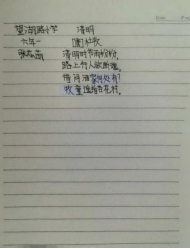 望湖路小学 清明
六年一 [唐]杜牧
清明时节雨纷纷,
路上行人欲断魂。
借问酒家何处有?
牧童遥指杏花村。